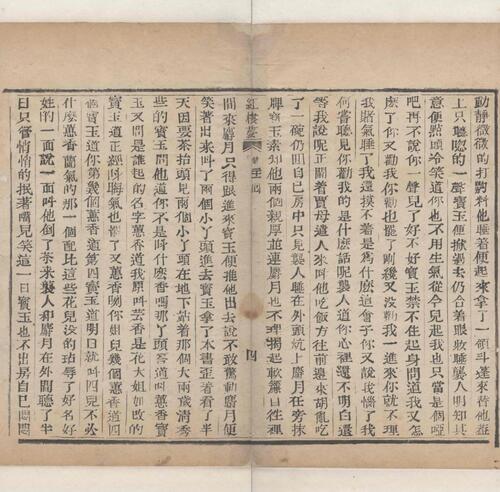 動靜微微的打齁料他睡着便起來拿了一領斗蓬來替他蓋
上只聽唿的一聲寶玉便掀過去仍合着眼收睡襲人明知其
意便點頭冷笑道你也不用生氣從今兒起我也只當是個啞
吧再不說你一聲兒了好不好寶玉禁不住起身問道我又怎
麽了你又勸我你勸也罷了剛纔又沒勸我一進來你就不理
我賭氣睡了我還摸不着是爲什麽這會子你又說我惱了我
何嘗聽見你勸我的是什麽話呢襲人道你心裡還不明白還
等我說呢正鬧着賈母遣人來叫他吃飯方往前邊來胡亂吃
了一碗仍回自已房中只見襲人睡在外頭炕上麝月在旁抹
牌寶玉素知他兩個親厚並連麝月也不理揭起軟簾自往裡
紅樓夢 第二十一回 四
間來麝月只得跟進來寶玉便推他出去說不敢驚動麝月便
笑著出來叫了兩個小丫頭進去寶玉拿了本書歪着看了半
天因要茶抬頭見兩個小丫頭在地下站着那個大兩歲清秀
些的寶玉問他道你不是叫什麽香嗎那丫頭答道叫蕙香寶
玉又問是誰起的名字蕙香道我原叫芸香是花大姐如改的
寶玉道正經叫晦氣也罷了又蕙香咧你姐兒幾個蕙香道四
個寶玉道你第幾個蕙香道第四寶玉道明日就叫四兒不必
什麽蕙香蘭氣的那一個配比這些花兒沒的玷辱了好名好
姓的一面說一面叫他倒了茶來襲人和麝月在外間聽了半
日只管悄悄的抿著嘴兒笑這一日寶玉也不出房自已悶悶